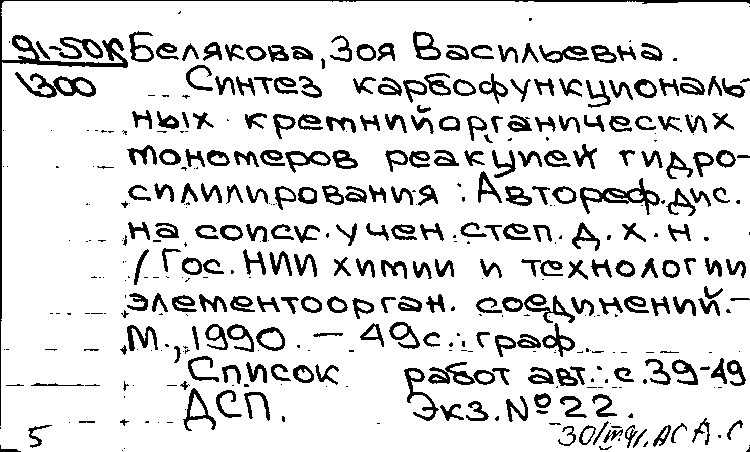 91-50к Белякова, Зоя Васильевна.
1300 Синтез карбофункциональ-
ных кремнийорганических
мономеров реакцией гидро-
силилирования : Автореф.дис.
на соиск.учен.степ.д.х.н.
/Гос.НИИ химии и технологии
элементоорган. соединений.–
М.,1990. – 49с.:граф.
Список работ авт.:с.39-49
ДСП. Экз.№22.
5